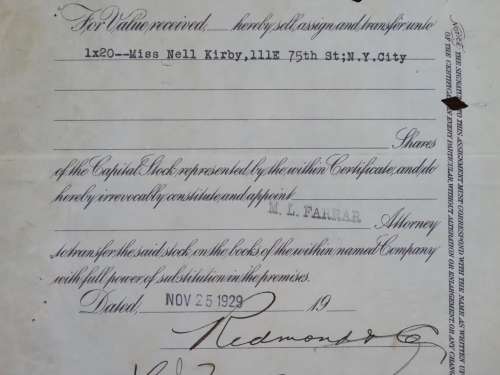 For Value received, hereby sell, assign and transfer unto
1x20--Miss Nell Kirby,111E 75th St;N.Y.City
Shares
of the Capital Stock represented by the within Certificate, and do
hereby irrevocably constitute and appoint
M. L. FARRAR
Attorney
to transfer the said stock on the books of the within named Company
with full power of substitution in the premises.
Dated, NOV 25 1929 19
Redmond & Co
NOTICE THE SIGNATURE TO THIS ASSIGNMENT MUST CORRESPOND WITH THE NAME AS WRITTEN
OF THE CERTIFICATE IN EVERY PARTICULAR, WITHOUT ALTERATION OR ENLARGEMENT, OR ANY